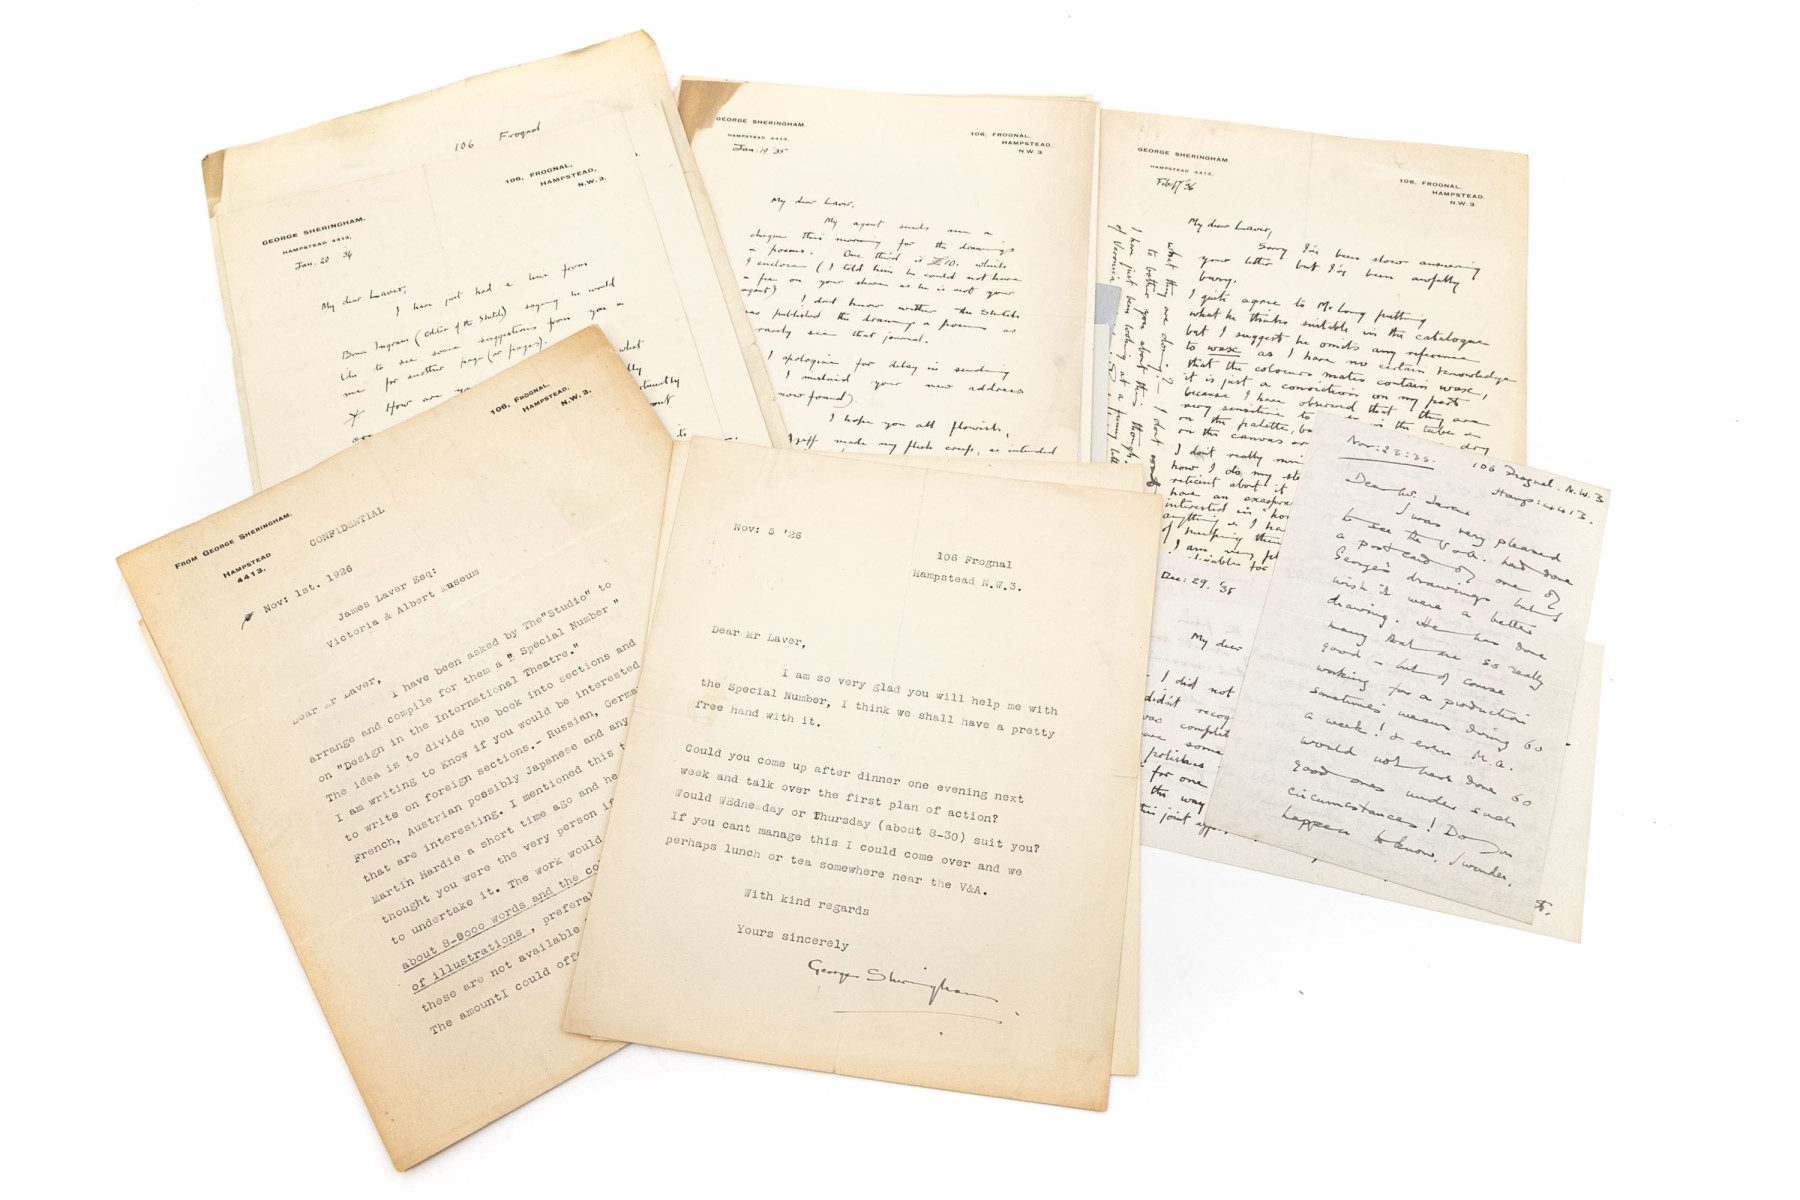 106 Frognal
106, FROGNAL,
HAMPSTEAD,
N.W. 3.
GEORGE SHERINGHAM.
HAMPSTEAD 4413.
Jan. 20 34
My dear Laver,
I have just had a line from
Bruce Ingram (Editor of the Sketch) saying he would
like to see some suggestions from you &
me for another page (or pages).
How are
what
are
GEORGE SHERINGHAM.
HAMPSTEAD 4413.
Jan: 19 '35
106, FROGNAL,
HAMPSTEAD.
N.W. 3.
My dear Laver,
My agent sends me a
cheque this morning for the drawings
& poems. One third is £10. which
I enclose (I told him he could not have
a fee on your share as he is not your
agent) I don't know whether the Sketch
has published the drawing & poems as
I rarely see that journal.
I apologise for delay in sending
I mislaid your new address
now found)
I hope you all flourish,
made my flesh creep, as intended
GEORGE SHERINGHAM.
HAMPSTEAD 4413.
Feb: 17 '36
106, FROGNAL,
HAMPSTEAD.
N.W. 3.
My dear Laver,
Sorry I've been slow answering
your letter but I've been awfully
busy.
I quite agree to Mr Long putting
what he thinks suitable in the catalogue
but I suggest he omits any reference
to wax as I have no certain knowledge
that the colours mates contain wax,
it is just a conviction on my part
because I have observed that they are
very sensitive to in the tube or
on the palette, dry
on the canvas or
I don't really
how I do my
reticent about it
have an
interested in "how
anything & I ha
of
I am, very
what they are doing? — I don't want
to bother you about this though.
I have just been looking at a funny
of Veronica
Dec: 29. '35
My dear
I did not
didn't recog
was complet
some
polishes
for one
the way
this joint
Nov: 23: 35. 106 Frognal. N.W. 3
Hamp: 4413.
Dear Mr. Laver
I was very pleased
to see the V & A. had done
a postcard of one of
George's drawings but I
wish it were a better
drawing. He has done
many that are so really
good — but of course
working for a production
sometimes means doing 60
a week! & even M.A.
would not have done 60
good ones under such
circumstances! Do you
happen to know, I wonder,
FROM GEORGE SHERINGHAM.
HAMPSTEAD
4413.
106, FROGNAL,
HAMPSTEAD.
N.W. 3.
CONFIDENTIAL
Nov: 1st. 1926
James Laver Esq:
Victoria & Albert Museum
Dear Mr Laver,
I have been asked by The"Studio" to
arrange and compile for them a " Special Number "
on "Design in the International Theatre."
The idea is to divide the book into sections and
I am writing to Know if you would be interested
to write on foreign sections.- Russian, German
French, Austrian possibly Japanese and any
that are interesting. I mentioned this t
Martin Hardie a short time ago and he
thought you were the very person if
to undertake it. The work would
about 8-9000 words and the co
of illustrations, preferab
these are not available
The amountI could offe
Nov: 5 '26
106 Frognal
Hampstead N.W.3.
Dear Mr Laver,
I am so very glad you will help me with
the Special Number, I think we shall have a pretty
free hand with it.
Could you come up after dinner one evening next
week and talk over the first plan of action?
Would WEdnesday or Thursday (about 8-30) suit you?
If you cant manage this I could come over and we
perhaps lunch or tea somewhere near the V&A.
With kind regards
Yours sincerely
George Sheringham